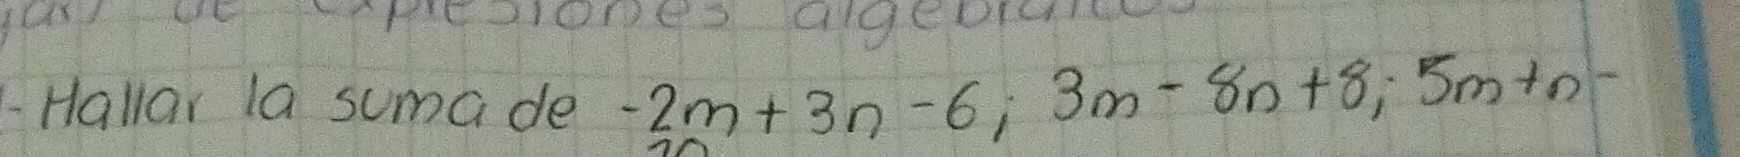 de expresiones algebraicas
- Hallar la suma de -2m + 3n - 6; 3m - 8n + 8; 5m + n -